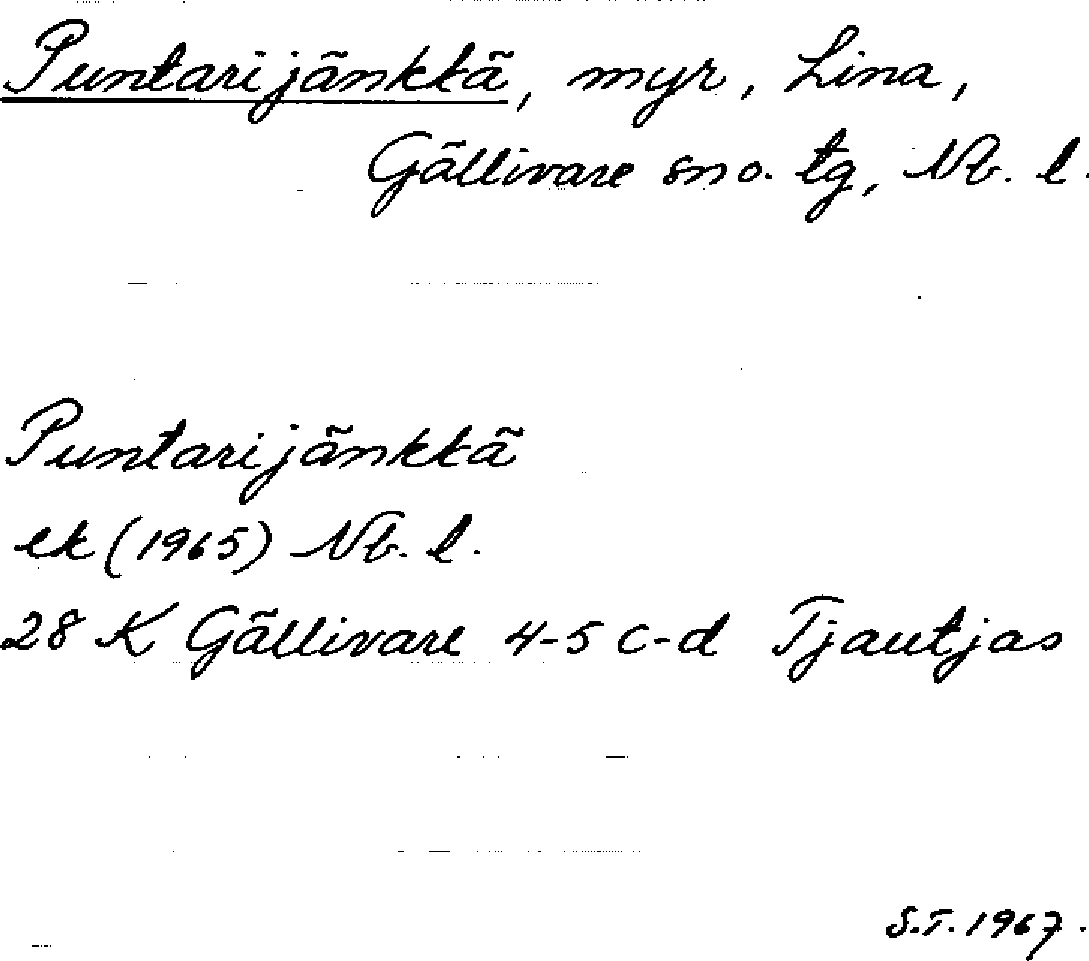 Puntarijänkkä, myr, Lina,
Gällivare sn o. tg, Nb. l.
Puntarijänkkä
ek (1965) Nb. l.
28 K Gällivare 4-5 c-d Tjautjas
S.T. 1967.